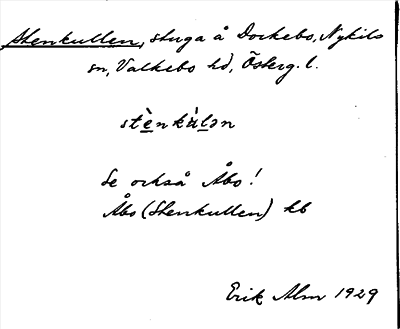 Stenkullen, stuga å Dockebo, Nykils
sn, Valkebo hd, Österg. l.
stènkùlən
Se också Åbo!
Åbo (Stenkullen) kb
Erik Alm 1929